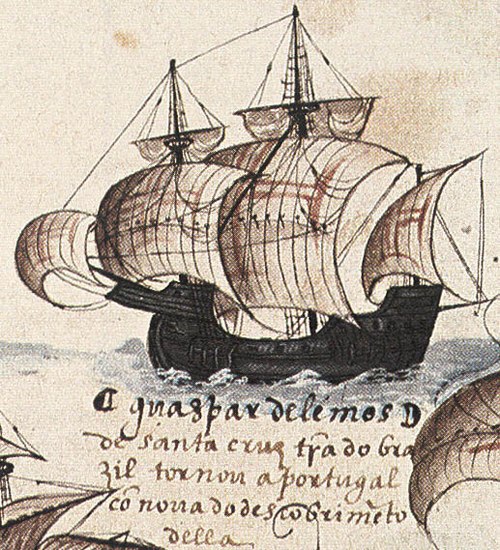 guaspar de lémos D
de santa cruz tr̃a do bra
zil tornou a portugal
cõ noua do descobrimẽto
della